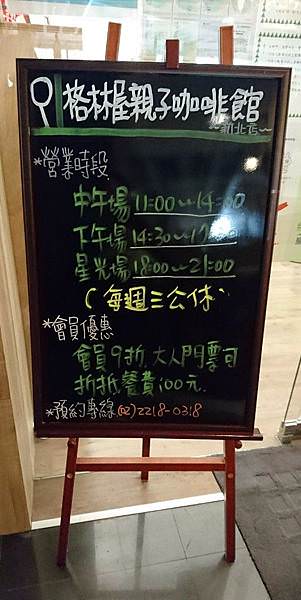 格林屋親子咖啡館
~新北店~
*營業時段
中午場 11:00~14:00
下午場 14:30~17:
星光場 18:00~21:00
(每週三公休)
*會員優惠
會員9折,大人門票可
折抵餐費100元.
*預約專線(02)2218-0318